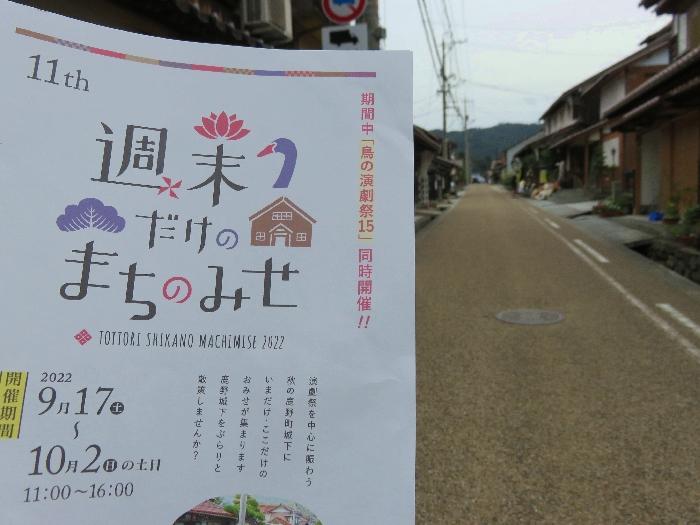 11th
週末
だけの
まちのみせ
TOTTORI SHIKANO MACHIMISE 2022
期間中「鳥の演劇祭15」同時開催!!
開催期間
2022
9月17土
〜
10月2日の土日
11:00〜16:00
演劇祭を中心に賑わう
秋の鹿野町城下に
いまだけ・ここだけの
おみせが集まります
鹿野城下をぶらりと
散策しませんか?